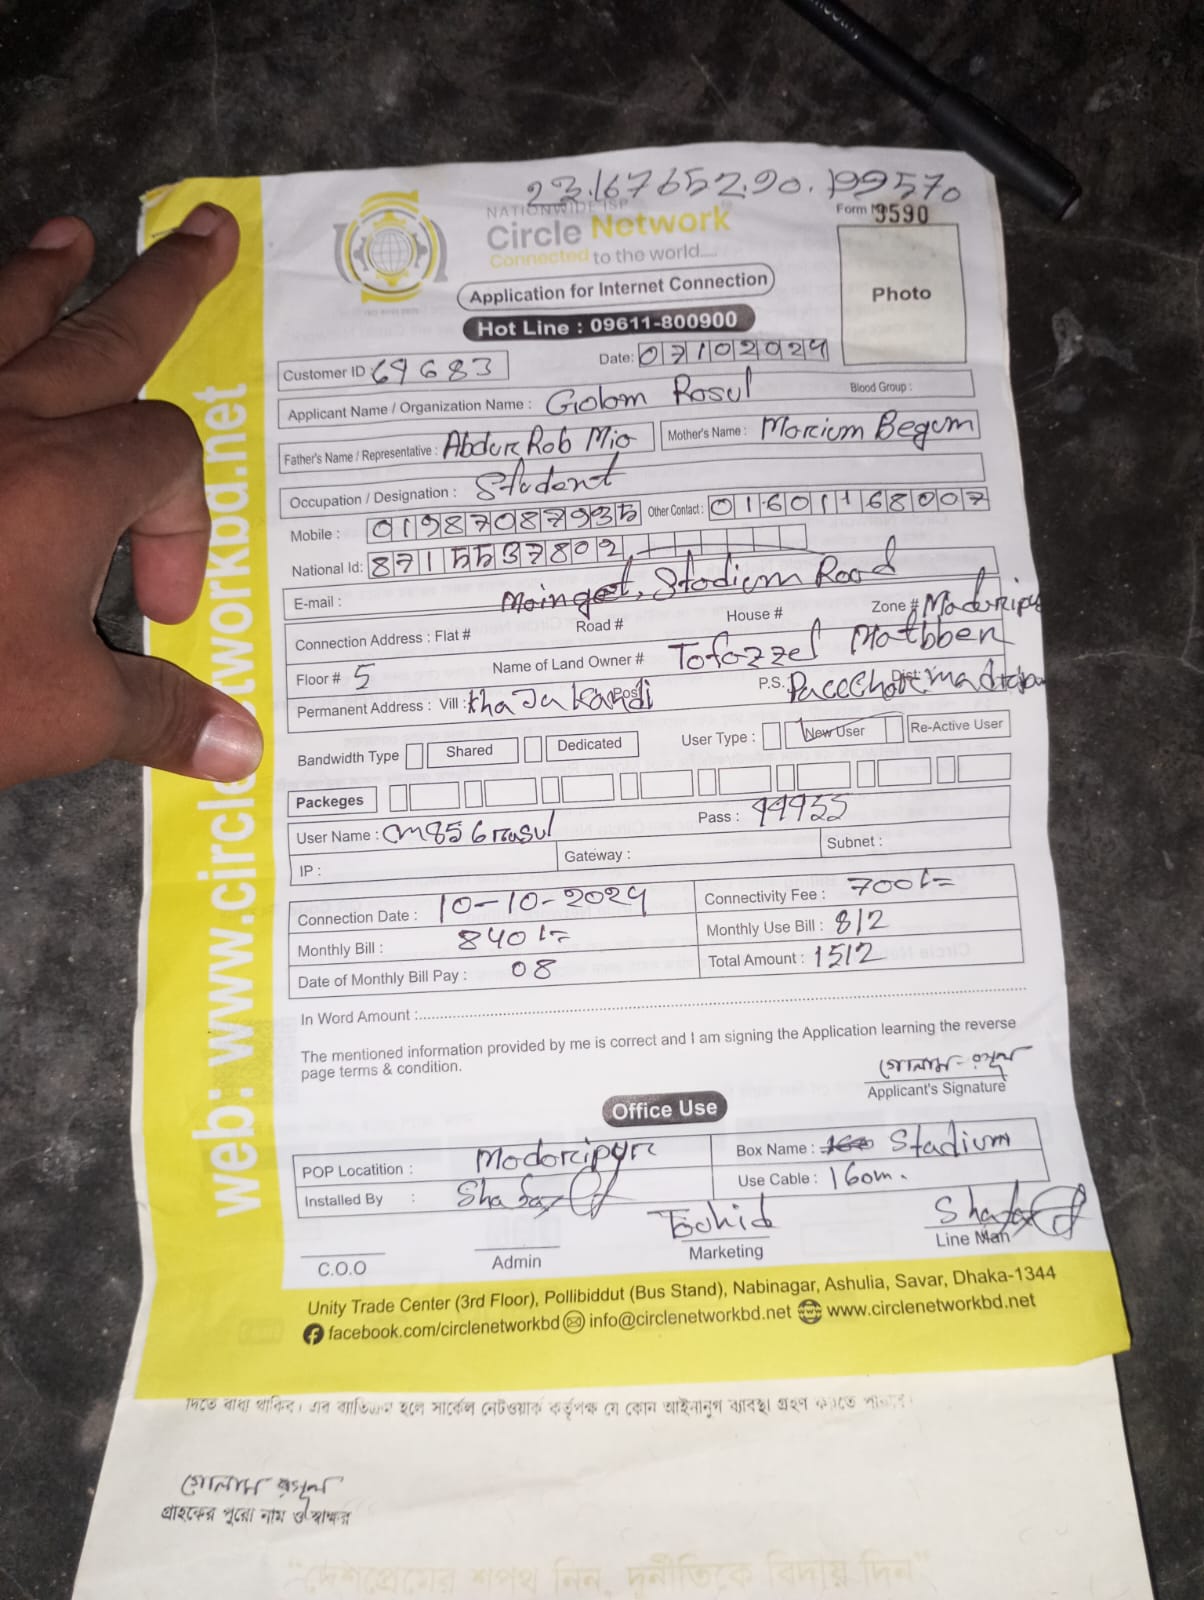 23.167652.90.199570
NATIONWIDE ISP
Form No 9590
Circle Network
Connected to the world....
Photo
Application for Internet Connection
Hot Line : 09611-800900
Customer ID 69683 Date: 07102024
Applicant Name / Organization Name : Golam Rasul Blood Group :
Father's Name / Representative : Abdur Rob Mia Mother's Name : Marium Begum
Occupation / Designation : Student
Mobile : 01987087935 Other Contact : 01601168007
National Id: 8715537802
E-mail :
Maingat, Stadium Road
Connection Address : Flat # Road # House # Zone # Madaripur
Floor # 5 Name of Land Owner # Tofazzel Matbber
Permanent Address : Vill : Kha Ja Kandi Post P.S. Dist:
Bandwidth Type Shared Dedicated User Type : New User Re-Active User
Packeges
User Name : Pass : 99955
IP : Gateway : Subnet :
Connection Date : 10-10-2024 Connectivity Fee : 700/=
Monthly Bill : 840/= Monthly Use Bill : 812
Date of Monthly Bill Pay : 08 Total Amount : 1512
In Word Amount :
The mentioned information provided by me is correct and I am signing the Application learning the reverse
page terms & condition.
গোলাম রসুল
Applicant's Signature
Office Use
POP Locatition : Madaripur Box Name : Stadium
Installed By : Use Cable : 160m.
C.O.O Admin Marketing Line Man
Unity Trade Center (3rd Floor), Pollibiddut (Bus Stand), Nabinagar, Ashulia, Savar, Dhaka-1344
facebook.com/circlenetworkbd info@circlenetworkbd.net www.circlenetworkbd.net
web: www.circlenetworkbd.net
দিতে বাধ্য থাকিব। এর ব্যতিক্রম হলে সার্কেল নেটওয়ার্ক কর্তৃপক্ষ যে কোন আইনানুগ ব্যবস্থা গ্রহণ করতে পারবে।
গোলাম রসুল
গ্রাহকের পুরো নাম ও স্বাক্ষর
“দেশপ্রেমের শপথ নিন, দুর্নীতিকে বিদায় দিন”